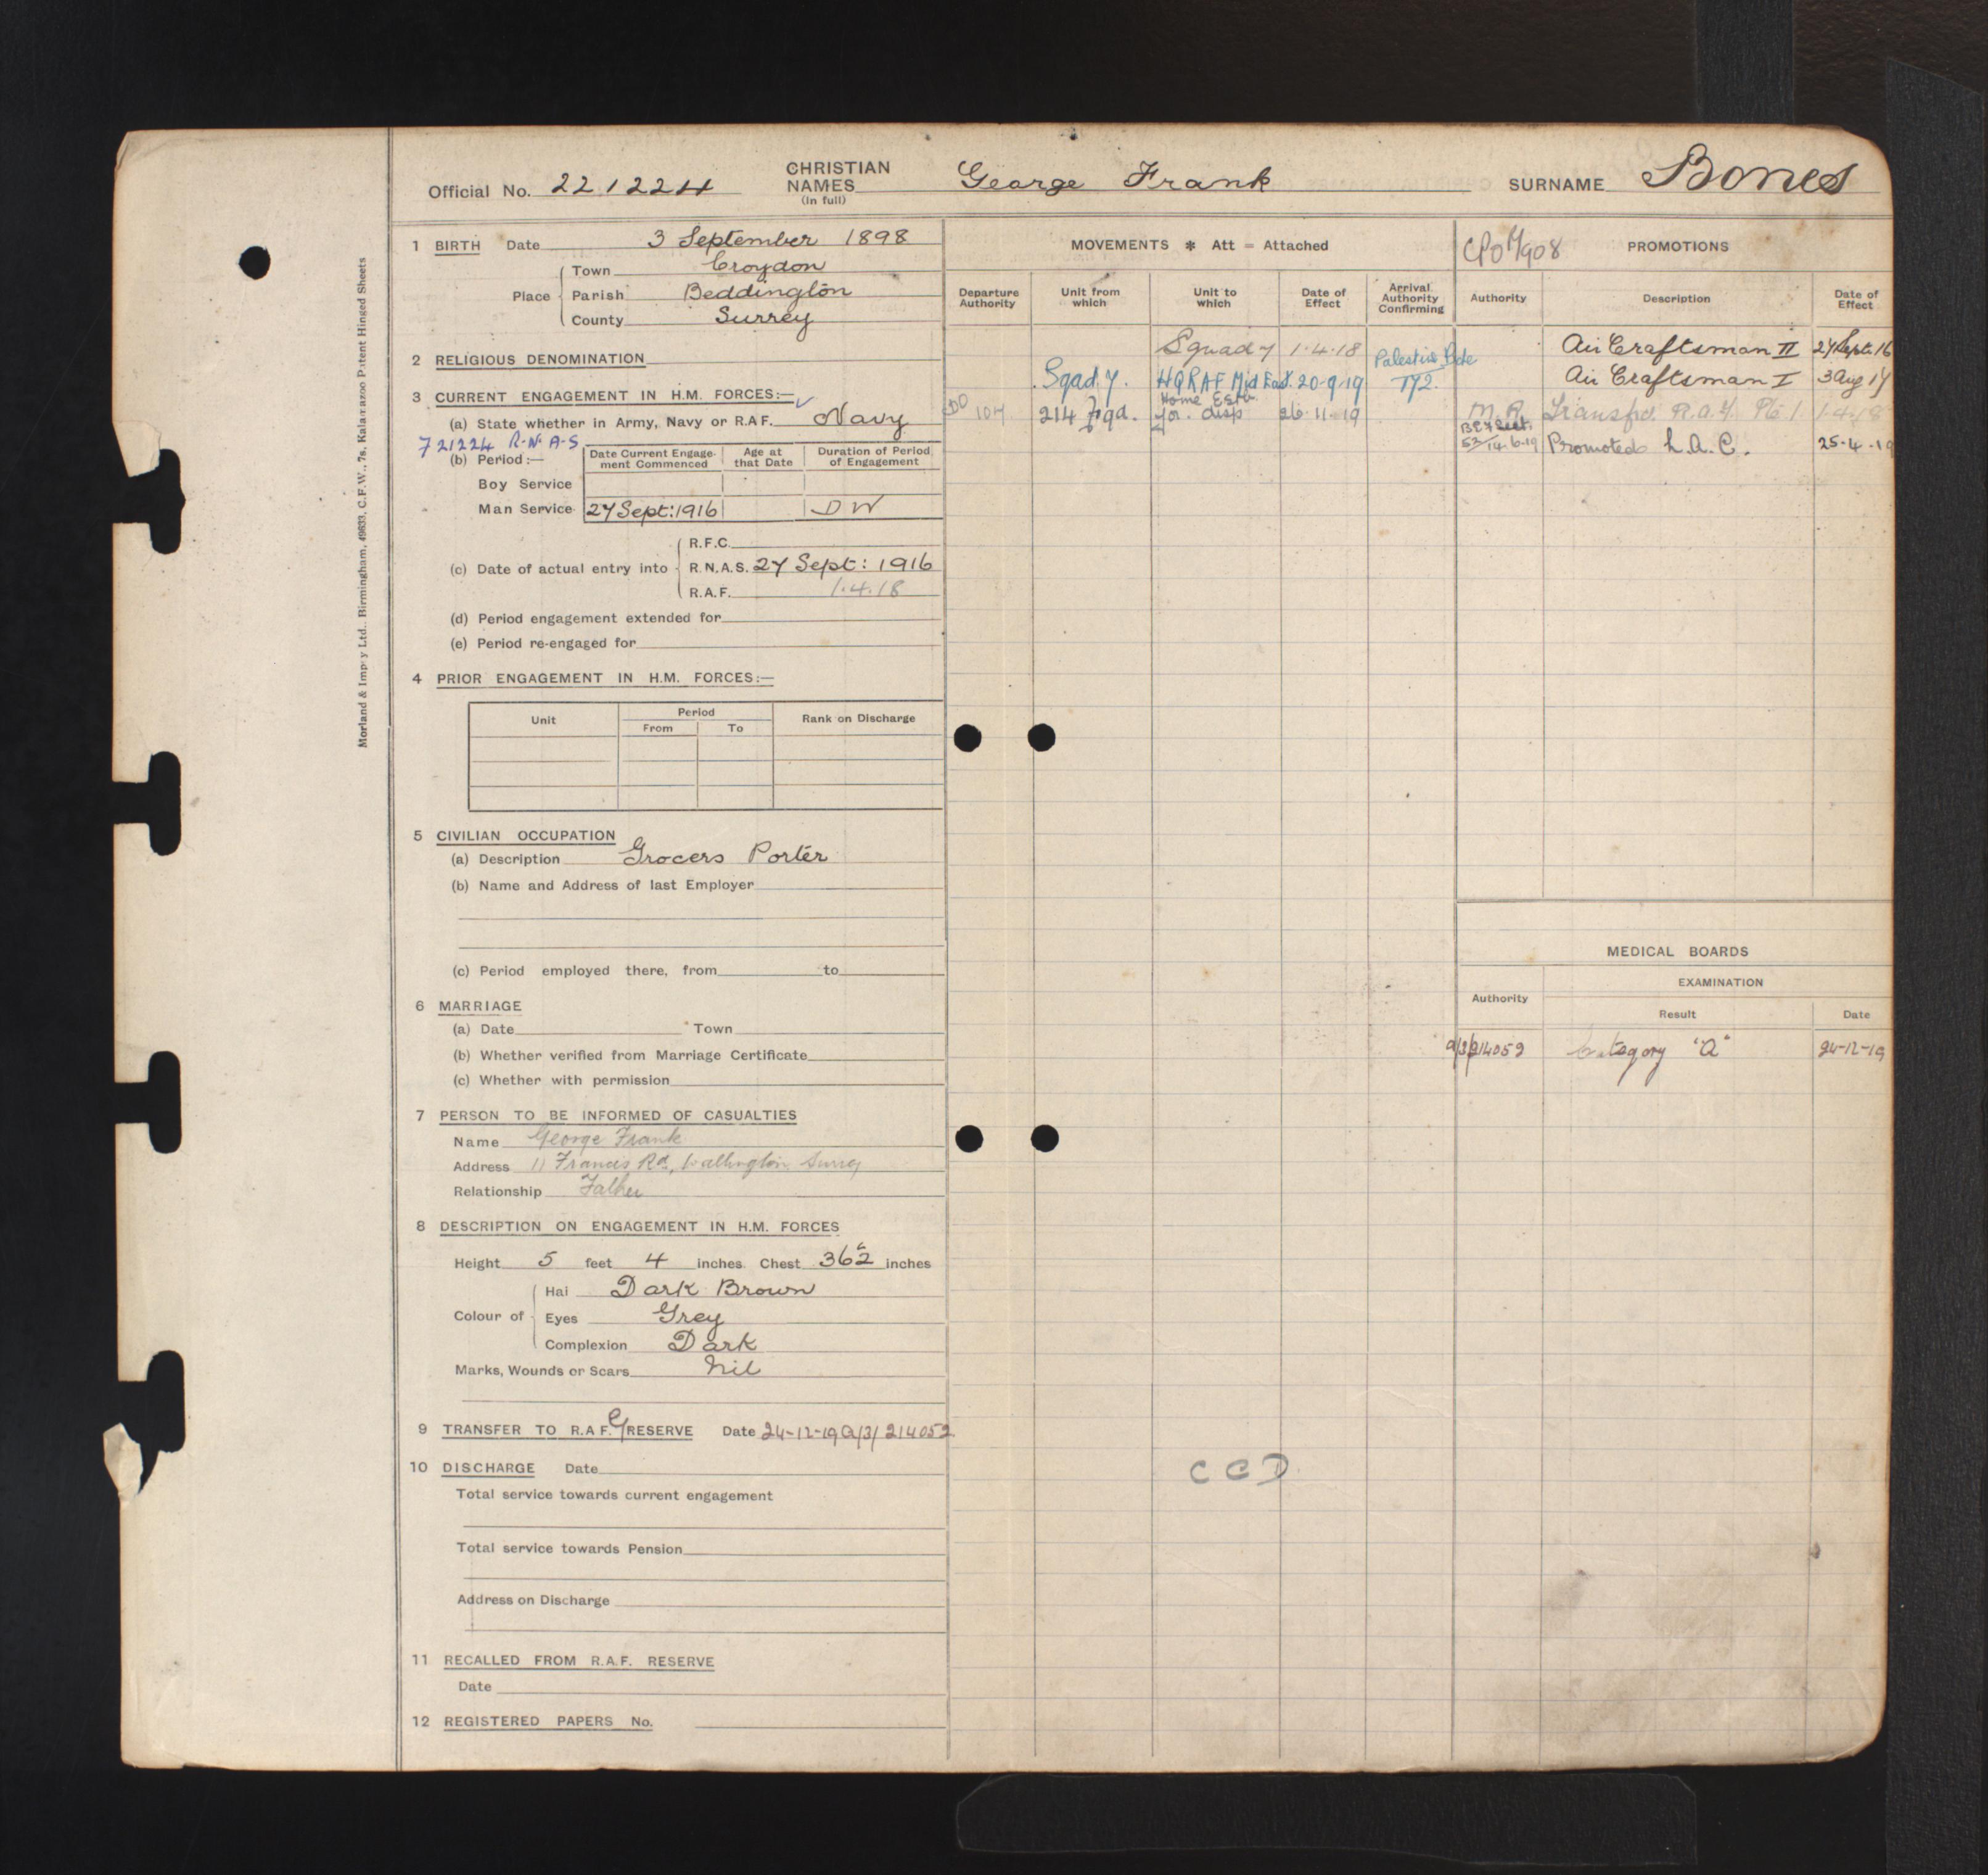 Official No. 221224 CHRISTIAN NAMES (in full) George Frank SURNAME Bones
1 BIRTH Date 3 September 1898
Place Town Croydon
Parish Beddington
County Surrey
2 RELIGIOUS DENOMINATION
3 CURRENT ENGAGEMENT IN H.M. FORCES:—
(a) State whether in Army, Navy or R.A.F. Navy
721224 R.N.A.S
(b) Period:—
Date Current Engage-ment Commenced Age at that Date Duration of Period of Engagement
Boy Service
Man Service 27 Sept: 1916 DW
(c) Date of actual entry into
R.F.C.
R.N.A.S. 27 Sept: 1916
R.A.F. 1.4.18
(d) Period engagement extended for
(e) Period re-engaged for
4 PRIOR ENGAGEMENT IN H.M. FORCES:—
Unit Period Rank on Discharge
From To
5 CIVILIAN OCCUPATION
(a) Description Grocers Porter
(b) Name and Address of last Employer
(c) Period employed there, from to
6 MARRIAGE
(a) Date Town
(b) Whether verified from Marriage Certificate
(c) Whether with permission
7 PERSON TO BE INFORMED OF CASUALTIES
Name George Frank
Address 11 Francis Rd, Wallington Surrey
Relationship Father
8 DESCRIPTION ON ENGAGEMENT IN H.M. FORCES
Height 5 feet 4 inches Chest inches
Colour of Hai Dark Brown
Eyes Grey
Complexion Dark
Marks, Wounds or Scars Nil
9 TRANSFER TO R.A.F. G RESERVE Date 24-12-19 a/3/214052
10 DISCHARGE Date
Total service towards current engagement
Total service towards Pension
Address on Discharge
11 RECALLED FROM R.A.F. RESERVE
Date
12 REGISTERED PAPERS No.
MOVEMENTS * Att = Attached
Departure Authority Unit from which Unit to which Date of Effect Arrival Authority Confirming
Squad 7 1.4.18
Sqad. 7. HQ RAF Mid East. 20.9.19 Palestine Bde 172.
DO 104 214 Sqd. Home Estb. for disp 26.11.19
CCD
PROMOTIONS
Authority Description Date of Effect
Air Craftsman II 27 Sept: 16
Air Craftsman I 3 Aug 17
M.R. Transfd. R.A.F. 1.4.18
52/14.6.19 Promoted L.A.C. 25.4.19
MEDICAL BOARDS
EXAMINATION
Authority Result Date
a/3/214052 Category "A" 24-12-19
Morland & Impey Ltd., Birmingham, 49633, C.F.W., 7s, Kalamazoo Patent Hinged Sheets